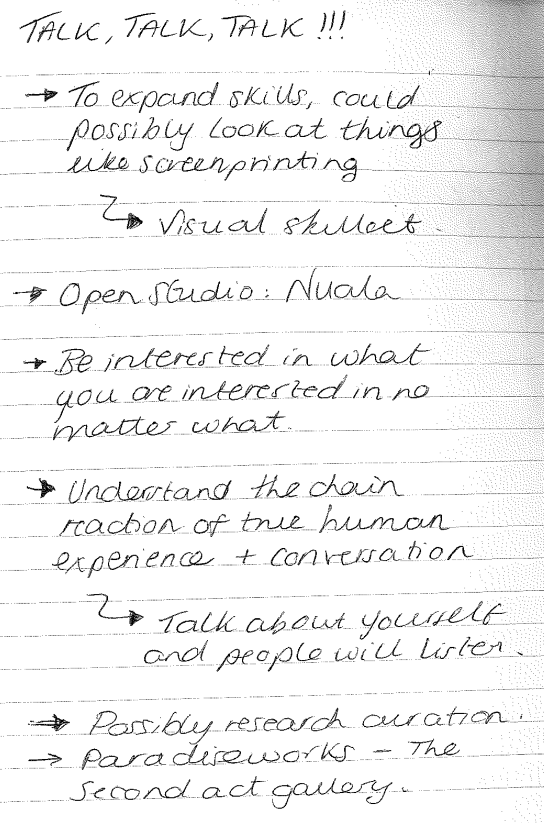 TALK, TALK, TALK !!!
→ To expand skills, could
possibly look at things
like screenprinting
↳ Visual skillset.
→ Open Studio: Nuala
→ Be interested in what
you are interested in no
matter what.
→ Understand the chain
reaction of true human
experience + conversation
↳ Talk about yourself
and people will listen.
→ Possibly research curation.
→ Paradiseworks – The
Second act gallery.